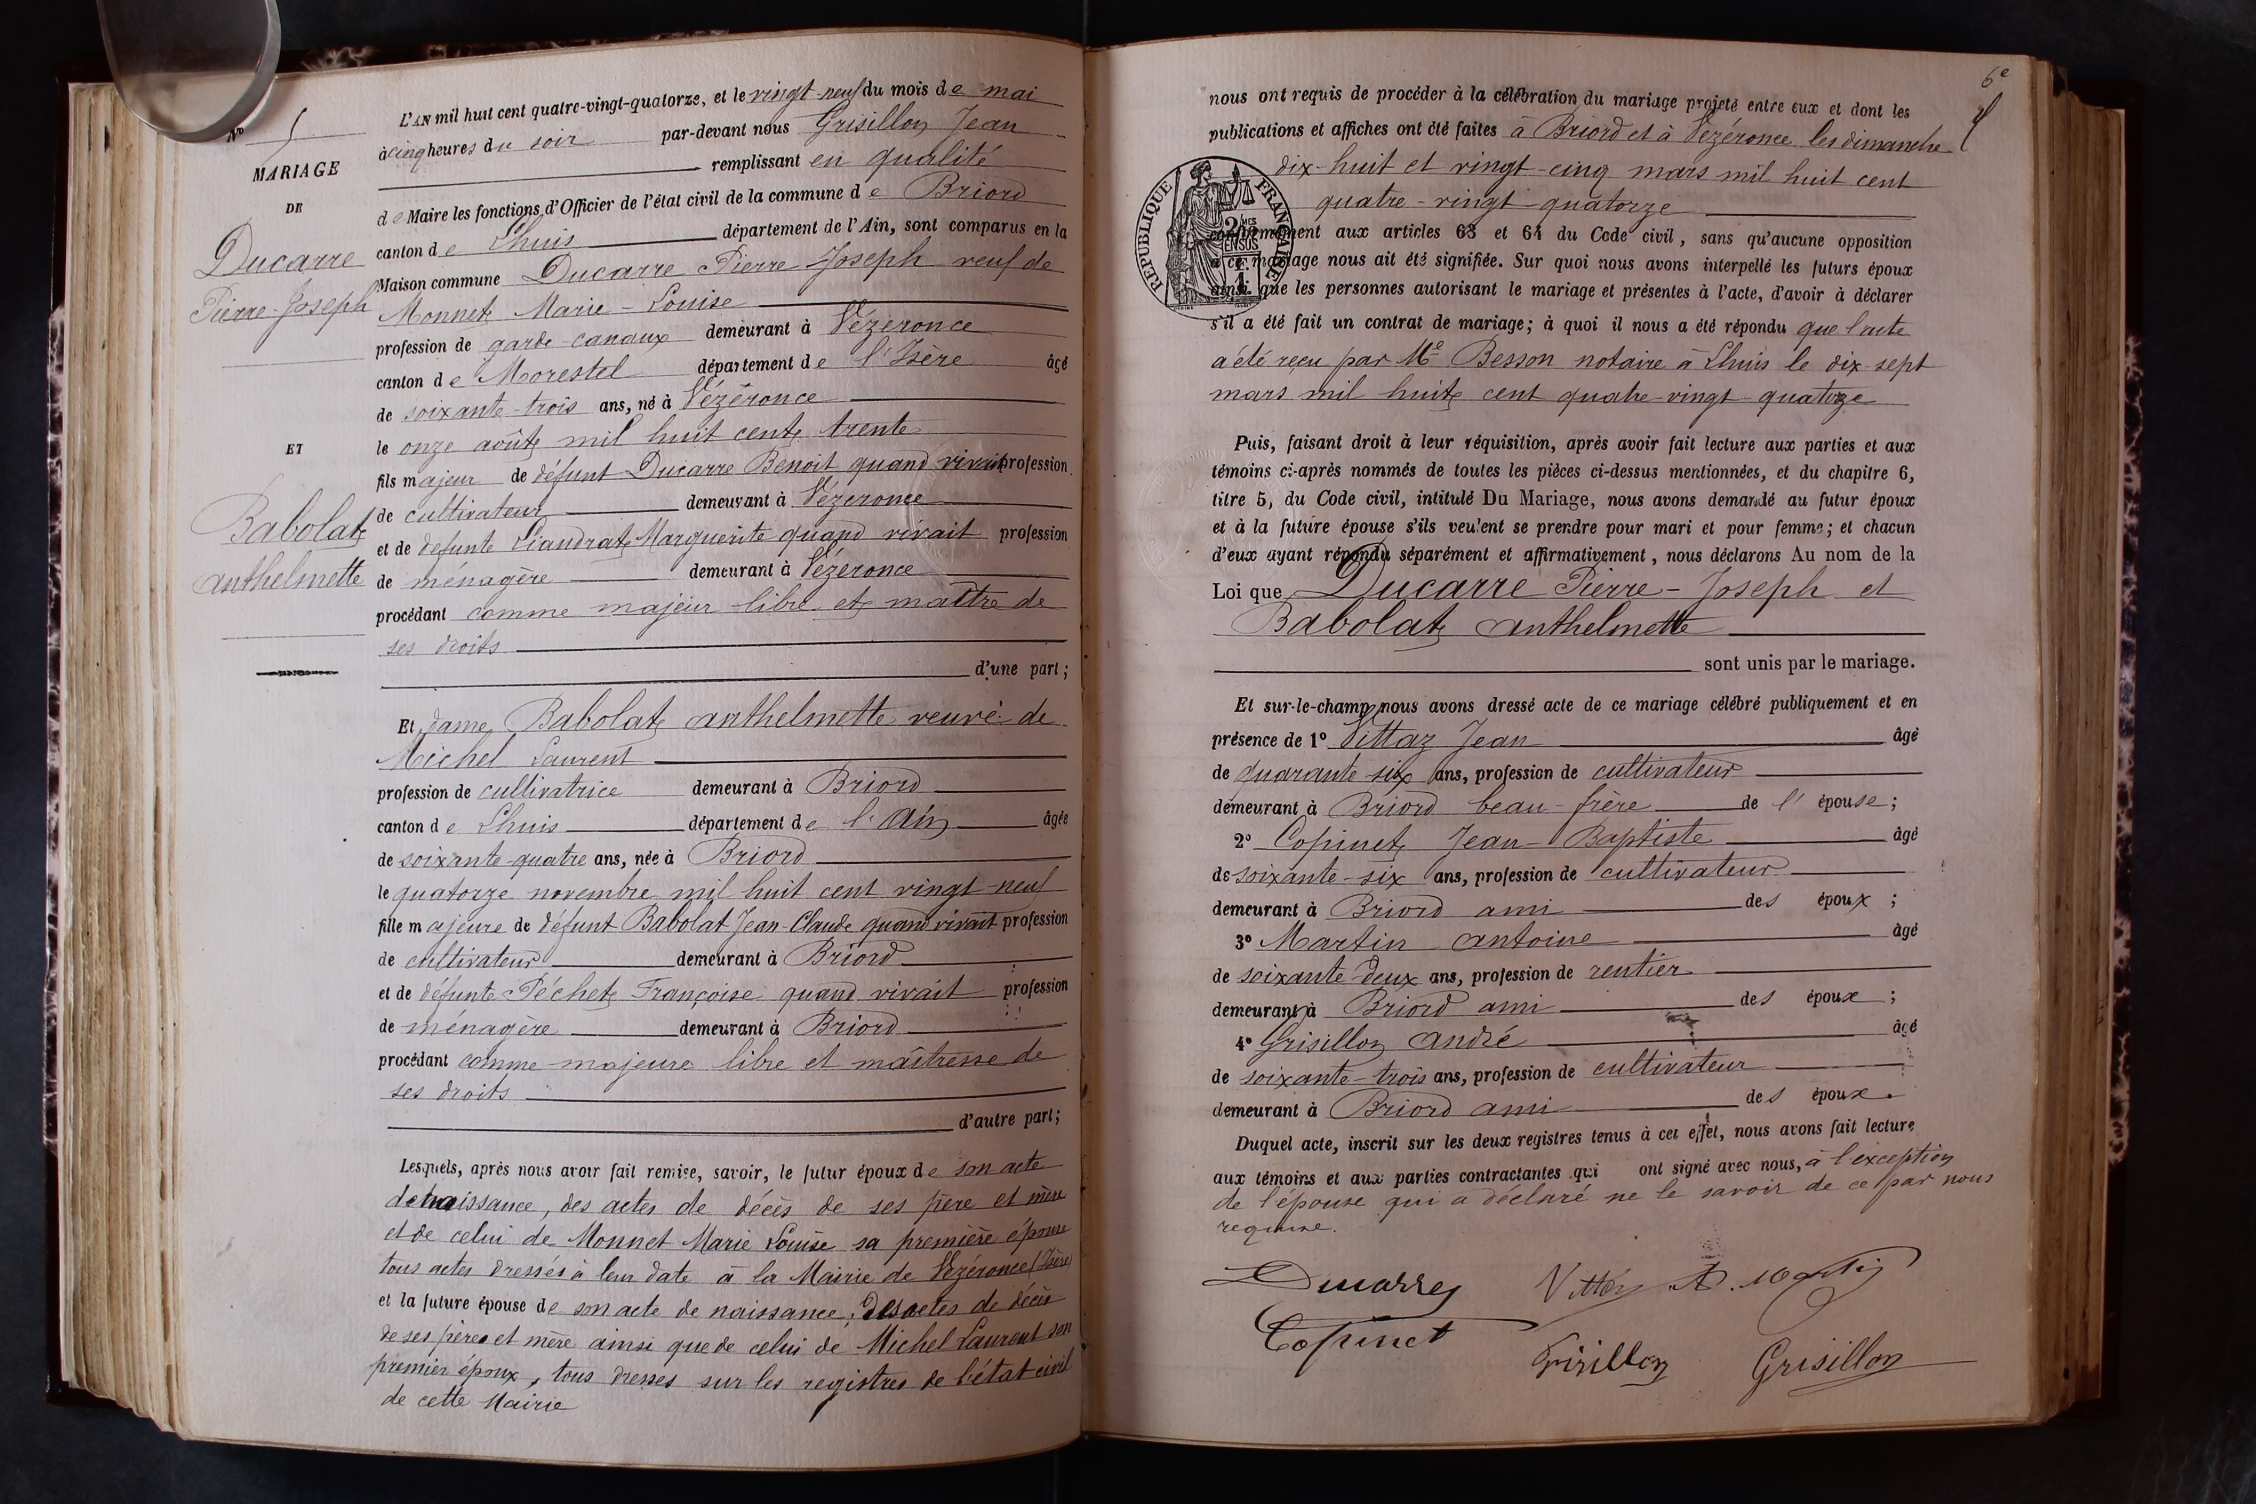 Nº 5
MARIAGE
DE
Ducarre
Pierre-Joseph
ET
Babolat
Anthelmette
L'AN mil huit cent quatre-vingt-quatorze, et le vingt-neuf du mois de mai
à cinq heures du soir par-devant nous Grisillon Jean
remplissant en qualité
de Maire les fonctions d'Officier de l'état civil de la commune de Briord
canton de Lhuis département de l'Ain, sont comparus en la
Maison commune Ducarre Pierre Joseph veuf de
Monnet Marie-Louise
profession de garde-canaux demeurant à Vézeronce
canton de Morestel département de l'Isère âgé
de soixante-trois ans, né à Vézéronce
le onze août mil huit cent trente
fils majeur de défunt Ducarre Benoit quand vivait profession
de cultivateur demeurant à Vézeronce
et de defunte Liandrat Marguerite quand vivait profession
de ménagère demeurant à Vézéronce
procédant comme majeur libre et maître de
ses droits
d'une part;
Et dame Babolat Anthelmette veuve de
Michel Laurent
profession de cultivatrice demeurant à Briord
canton de Lhuis département de l'Ain âgée
de soixante-quatre ans, née à Briord
le quatorze novembre mil huit cent vingt-neuf
fille majeure de défunt Babolat Jean-Claude quand vivait profession
de cultivateur demeurant à Briord
et de défunte Péchet Françoise quand vivait profession
de ménagère demeurant à Briord
procédant comme majeure libre et maîtresse de
ses droits
d'autre part;
Lesquels, après nous avoir fait remise, savoir, le futur époux de son acte
de naissance, des actes de décès de ses père et mère
et de celui de Monnet Marie Louise sa première épouse
tous actes dressés à leur date à la Mairie de Vézéronce (Isère)
et la future épouse de son acte de naissance, des actes de décès
de ses père et mère ainsi que de celui de Michel Laurent son
premier époux, tous dressés sur les registres de l'état civil
de cette Mairie
6e
nous ont requis de procéder à la célébration du mariage projeté entre eux et dont les
publications et affiches ont été faites à Briord et à Vézéronce les dimanche
dix-huit et vingt-cinq mars mil huit cent
quatre-vingt-quatorze
RÉPUBLIQUE FRANÇAISE
conformément aux articles 63 et 64 du Code civil, sans qu'aucune opposition
à ce mariage nous ait été signifiée. Sur quoi nous avons interpellé les futurs époux
ainsi que les personnes autorisant le mariage et présentes à l'acte, d'avoir à déclarer
s'il a été fait un contrat de mariage; à quoi il nous a été répondu que l'acte
a été reçu par Me Besson notaire à Lhuis le dix-sept
mars mil huit cent quatre-vingt-quatorze
Puis, faisant droit à leur réquisition, après avoir fait lecture aux parties et aux
témoins ci-après nommés de toutes les pièces ci-dessus mentionnées, et du chapitre 6,
titre 5, du Code civil, intitulé Du Mariage, nous avons demandé au futur époux
et à la future épouse s'ils veulent se prendre pour mari et pour femme; et chacun
d'eux ayant répondu séparément et affirmativement, nous déclarons Au nom de la
Loi que Ducarre Pierre-Joseph et
Babolat Anthelmette
sont unis par le mariage.
Et sur-le-champ nous avons dressé acte de ce mariage célébré publiquement et en
présence de 1º Vittaz Jean âgé
de quarante six ans, profession de cultivateur
demeurant à Briord beau-frère de l'épouse;
2º Copinet Jean-Baptiste âgé
de soixante-six ans, profession de cultivateur
demeurant à Briord ami des époux;
3º Martin Antoine âgé
de soixante-deux ans, profession de rentier
demeurant à Briord ami des époux;
4º Grisillon André âgé
de soixante-trois ans, profession de cultivateur
demeurant à Briord ami des époux.
Duquel acte, inscrit sur les deux registres tenus à cet effet, nous avons fait lecture
aux témoins et aux parties contractantes qui ont signé avec nous, à l'exception
de l'épouse qui a déclaré ne le savoir de ce par nous
requise.
Ducarre Vittoz A. Martin
Copinet
Grisillon Grisillon